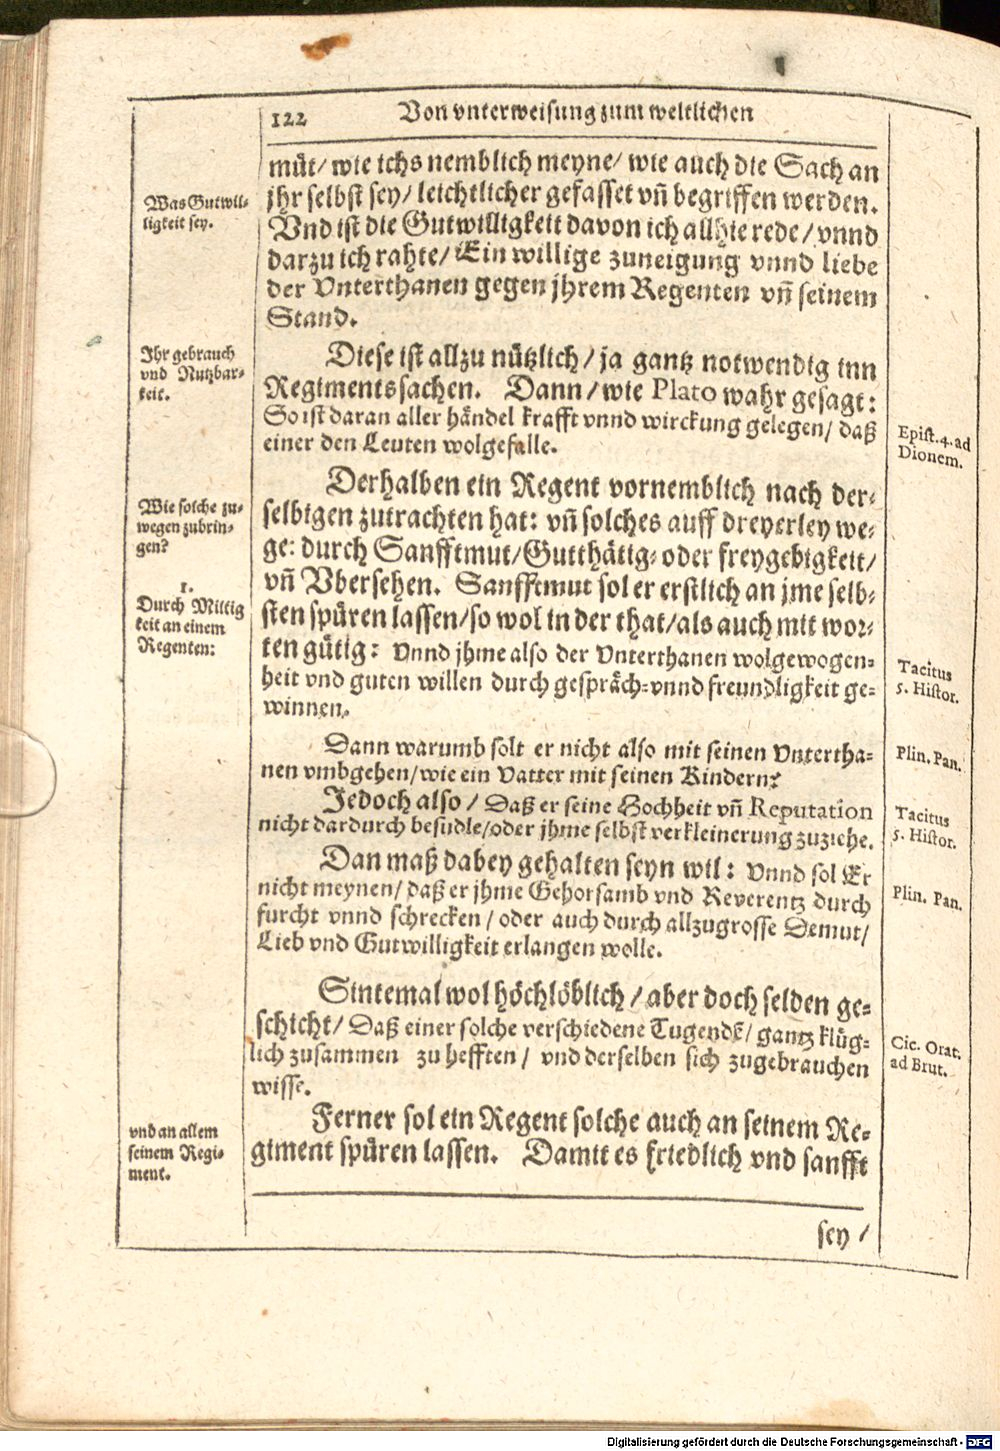 122 Von vnterweisung zum weltlichen
müt/ wie ichs nemblich meyne/ wie auch die Sach an
jhr selbst sey/ leichtlicher gefasset vñ begriffen werden.
Was Gutwil-
ligkeit sey.
Vnd ist die Gutwilligkeit davon ich allhie rede/ vnnd
darzu ich rahte/ Ein willige zuneigung vnnd liebe
der Vnterthanen gegen jhrem Regenten vñ seinem
Stand.
Ihr gebrauch
vnd Nutzbar-
keit.
Diese ist allzu nützlich/ ja gantz notwendig inn
Regimentssachen. Dann/ wie Plato wahr gesagt:
So ist daran aller händel krafft vnnd wirckung gelegen/ daß
einer den Leuten wolgefalle.
Epist. 4. ad
Dionem.
Wie solche zu-
wegen zubrin-
gen?
Derhalben ein Regent vornemblich nach der-
selbigen zutrachten hat: vñ solches auff dreyerley we-
ge: durch Sanfftmut/ Gutthätig- oder freygebigkeit/
vñ Vbersehen. Sanfftmut sol er erstlich an jme selb-
sten spüren lassen/ so wol in der that/ als auch mit wor-
ten gütig: Vnnd jhme also der Vnterthanen wolgewogen-
heit vnd guten willen durch gespräch- vnnd freundligkeit ge-
winnen.
1.
Durch Miltig
keit an einem
Regenten:
Tacitus
5. Histor.
Dann warumb solt er nicht also mit seinen Vntertha-
nen vmbgehen/ wie ein Vatter mit seinen Kindern?
Plin. Pan.
Jedoch also/ Daß er seine Hochheit vñ Reputation
nicht dardurch besudle/ oder jhme selbst verkleinerung zuziehe.
Tacitus
5. Histor.
Dan maß dabey gehalten seyn wil: Vnnd sol Er
nicht meynen/ daß er jhme Gehorsamb vnd Reverentz durch
furcht vnnd schrecken/ oder auch durch allzugrosse Demut/
Lieb vnd Gutwilligkeit erlangen wolle.
Plin. Pan.
Sintemal wol höchlöblich/ aber doch selden ge-
schicht/ Daß einer solche verschiedene Tugendē/ gantz klüg-
lich zusammen zu hefften/ vnd derselben sich zugebrauchen
wisse.
Cic. Orat.
ad Brut.
Ferner sol ein Regent solche auch an seinem Re-
giment spüren lassen. Damit es friedlich vnd sanfft
vnd an allem
seinem Regi-
ment.
sey/
Digitalisierung gefördert durch die Deutsche Forschungsgemeinschaft - DFG